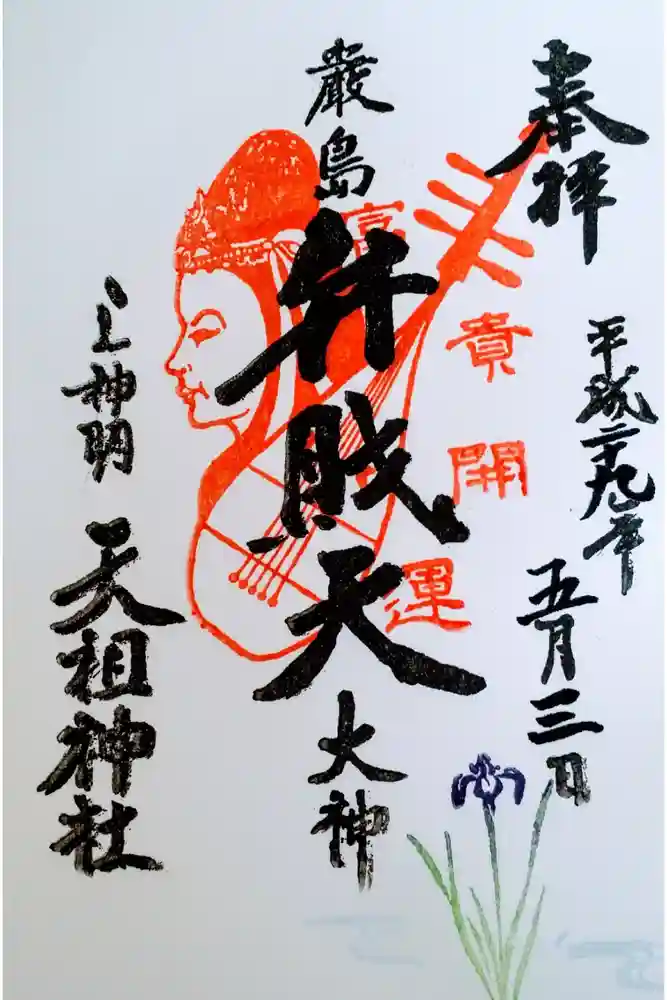 奉拝
平成二十九年
五月三日
富貴開運
厳島
弁財天
大神
上神明
天祖神社